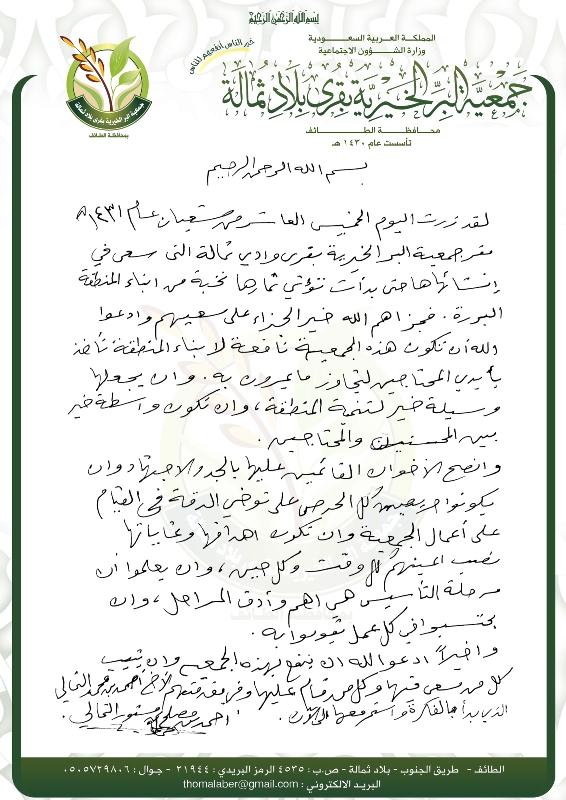 بسم الله الرحمن الرحيم
المملكة العربية السعودية
وزارة الشؤون الاجتماعية
خير الناس أنفعهم للناس
جمعية البر الخيرية بقرى بلاد ثمالة
محافظة الطائف
تأسست عام ١٤٣٠ هـ
جمعية البر الخيرية بقرى بلاد ثمالة
بمحافظة الطائف
بسم الله الرحمن الرحيم
لقد زرت اليوم الخميس العاشر من شعبان عام ١٤٣١هـ
مقر جمعية البر الخيرية بقرى وادي ثمالة التي سعى في
إنشائها حتى بدأت تؤتي ثمارها نخبة من ابناء المنطقة
البررة . فجزاهم الله خير الجزاء على سعيهم وادعوا
الله أن تكون هذه الجمعية نافعة لابناء المنطقة تأخذ
بأيدي المحتاجين لتجاوز ما يمرون به . وان يجعلها
وسيلة خير لتنمية المنطقة ، وان تكون واسطة خير
بين المحسنين والمحتاجين .
وانصح الاخوان القائمين عليها بالجد والاجتهاد وان
يكونوا حريصين كل الحرص على توخي الدقة في القيام
على أعمال الجمعية وان تكون اهدافها وغاياتها
نصب اعينهم كل وقت وكل حين ، وان يعلموا أن
مرحلة التأسيس هي اهم وأدق المراحل ، وان
يحتسبوا في كل عمل يقومون به .
واخيراً ادعوا الله ان ينفع بهذه الجمعية وان يثيب
كل من سعى فيها وكل من قام عليها وفي مقدمتهم الأخ احمد بن محمد الثمالي
الذي بدأ بالفكرة واستمر معها الى الآن .
احمد بن الثمالي .
الطائف - طريق الجنوب - بلاد ثمالة - ص.ب : ٤٥٣٥ الرمز البريدي : ٢١٩٤٤ - جوال : ٠٥٠٥٧٢٩٨٠٦
البريد الالكتروني : thomalaber@gmail.com